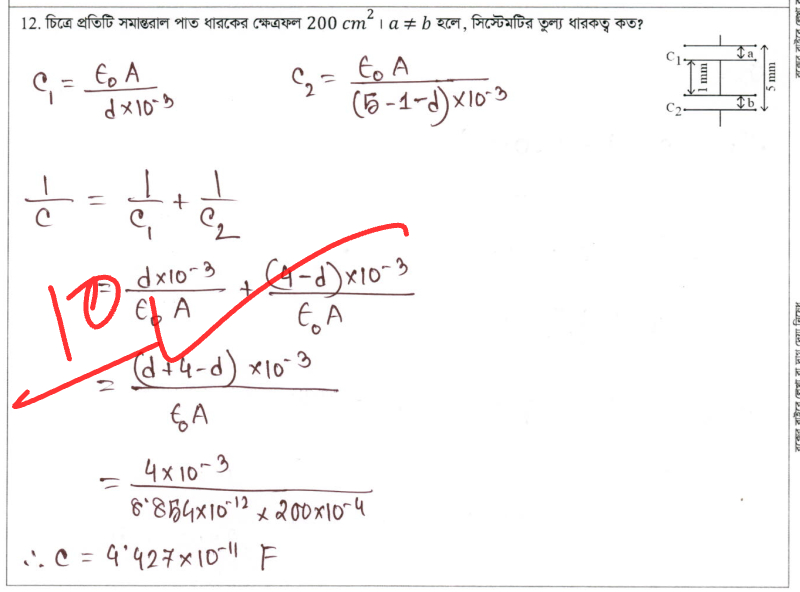 12. চিত্রে প্রতিটি সমান্তরাল পাত ধারকের ক্ষেত্রফল 200 cm² । a ≠ b হলে, সিস্টেমটির তুল্য ধারকত্ব কত?
C₁ 1 mm a 5 mm
C₂ b
C₁ = ϵ₀ A / d×10⁻³ C₂ = ϵ₀ A / (5-1-d)×10⁻³
1/C = 1/C₁ + 1/C₂
= d×10⁻³ / ϵ₀ A + (4-d)×10⁻³ / ϵ₀ A
10
= (d+4-d) ×10⁻³ / ϵ₀ A
= 4×10⁻³ / 8.854×10⁻¹² × 200×10⁻⁴
∴ C = 4.427×10⁻¹¹ F